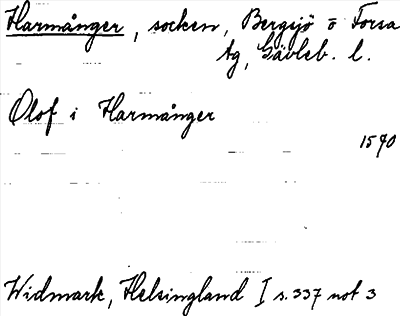 Harmånger, socken, Bergsjö o Forsa
tg, Gävleb. l.
Olof i Harmånger
1590
Widmark, Helsingland I s. 337 not 3